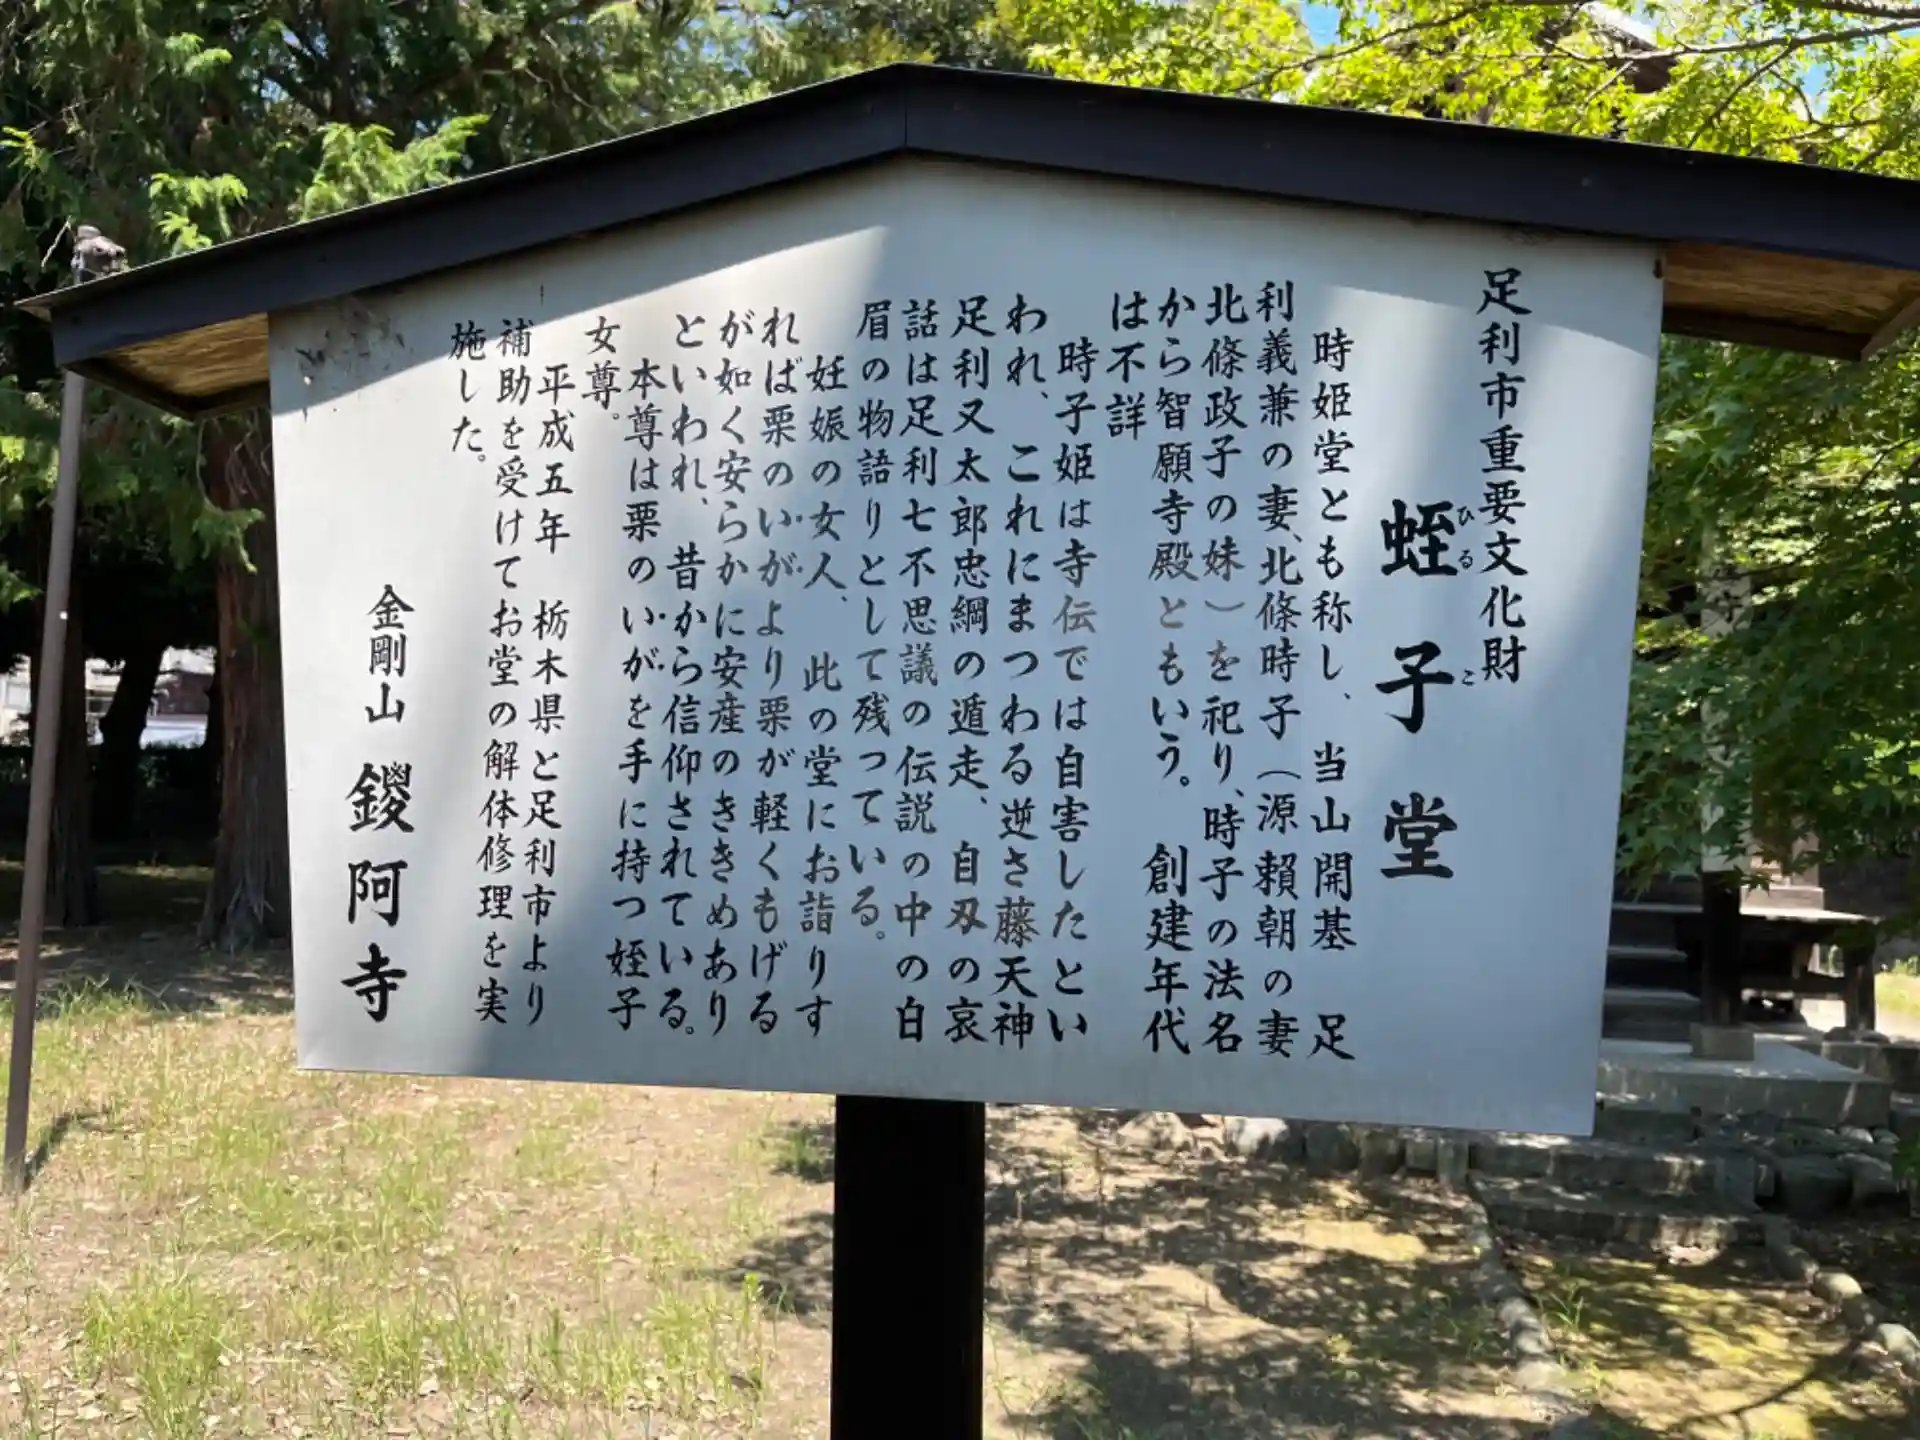 足利市重要文化財
蛭子堂
ひる
こ
時姫堂とも称し、当山開基 足
利義兼の妻、北條時子(源 頼朝の妻
北條政子の妹)を祀り、時子の法名
から智願寺殿ともいう。 創建年代
は不詳
時子姫は寺伝では自害したとい
われ、これにまつわる逆さ藤天神
足利又太郎忠綱の遁走、自刃の哀
話は足利七不思議の伝説の中の白
眉の物語りとして残っている。
妊娠の女人、此の堂にお詣りす
れば栗のいがより栗が軽くもげる
が如く安らかに安産のききめあり
といわれ、昔から信仰されている。
本尊は栗のいがを手に持つ姪子
女尊。
平成五年 栃木県と足利市より
補助を受けてお堂の解体修理を実
施した。
金剛山 鑁阿寺